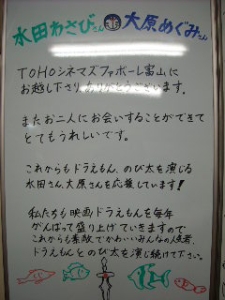 水田わさびさん 大原めぐみさん
TOHOシネマズファボーレ富山に
お越し下さりありがとうございます。
またお二人にお会いすることができて
とてもうれしいです。
これからもドラえもん、のび太を演じる
水田さん、大原さんを応援しています!
私たちも映画ドラえもんを毎年
がんばって盛り上げていきますので
これからも素敵でかわいいみんなの人気者、
ドラえもんとのび太を演じ続けて下さい。